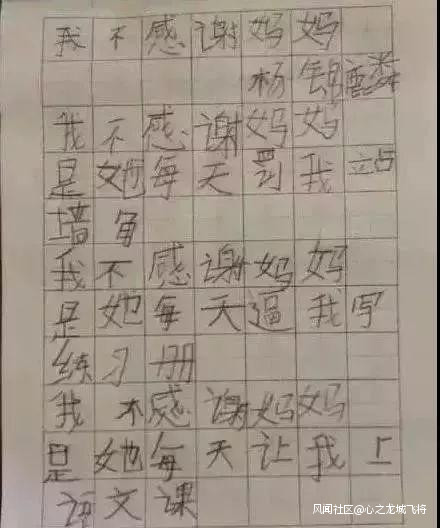 我不感谢妈妈
杨锦麟
我不感谢妈妈
是她每天罚我站
墙角
我不感谢妈妈
是她每天逼我写
练习册
我不感谢妈妈
是她每天让我上
语文课
风闻社区@心之龙城飞将